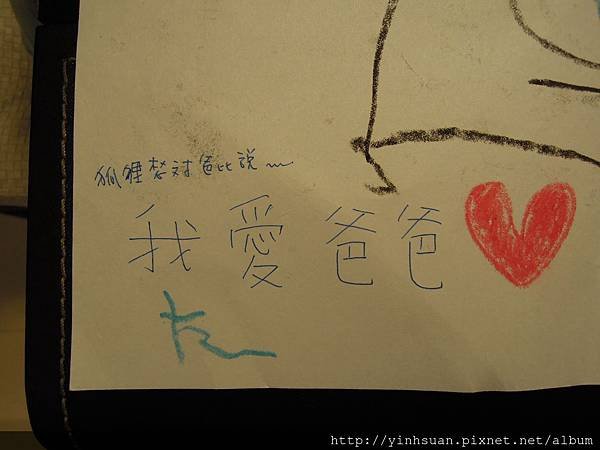 狐狸對爸比說～
我愛爸爸
http://yinhsuan.pixnet.net/album